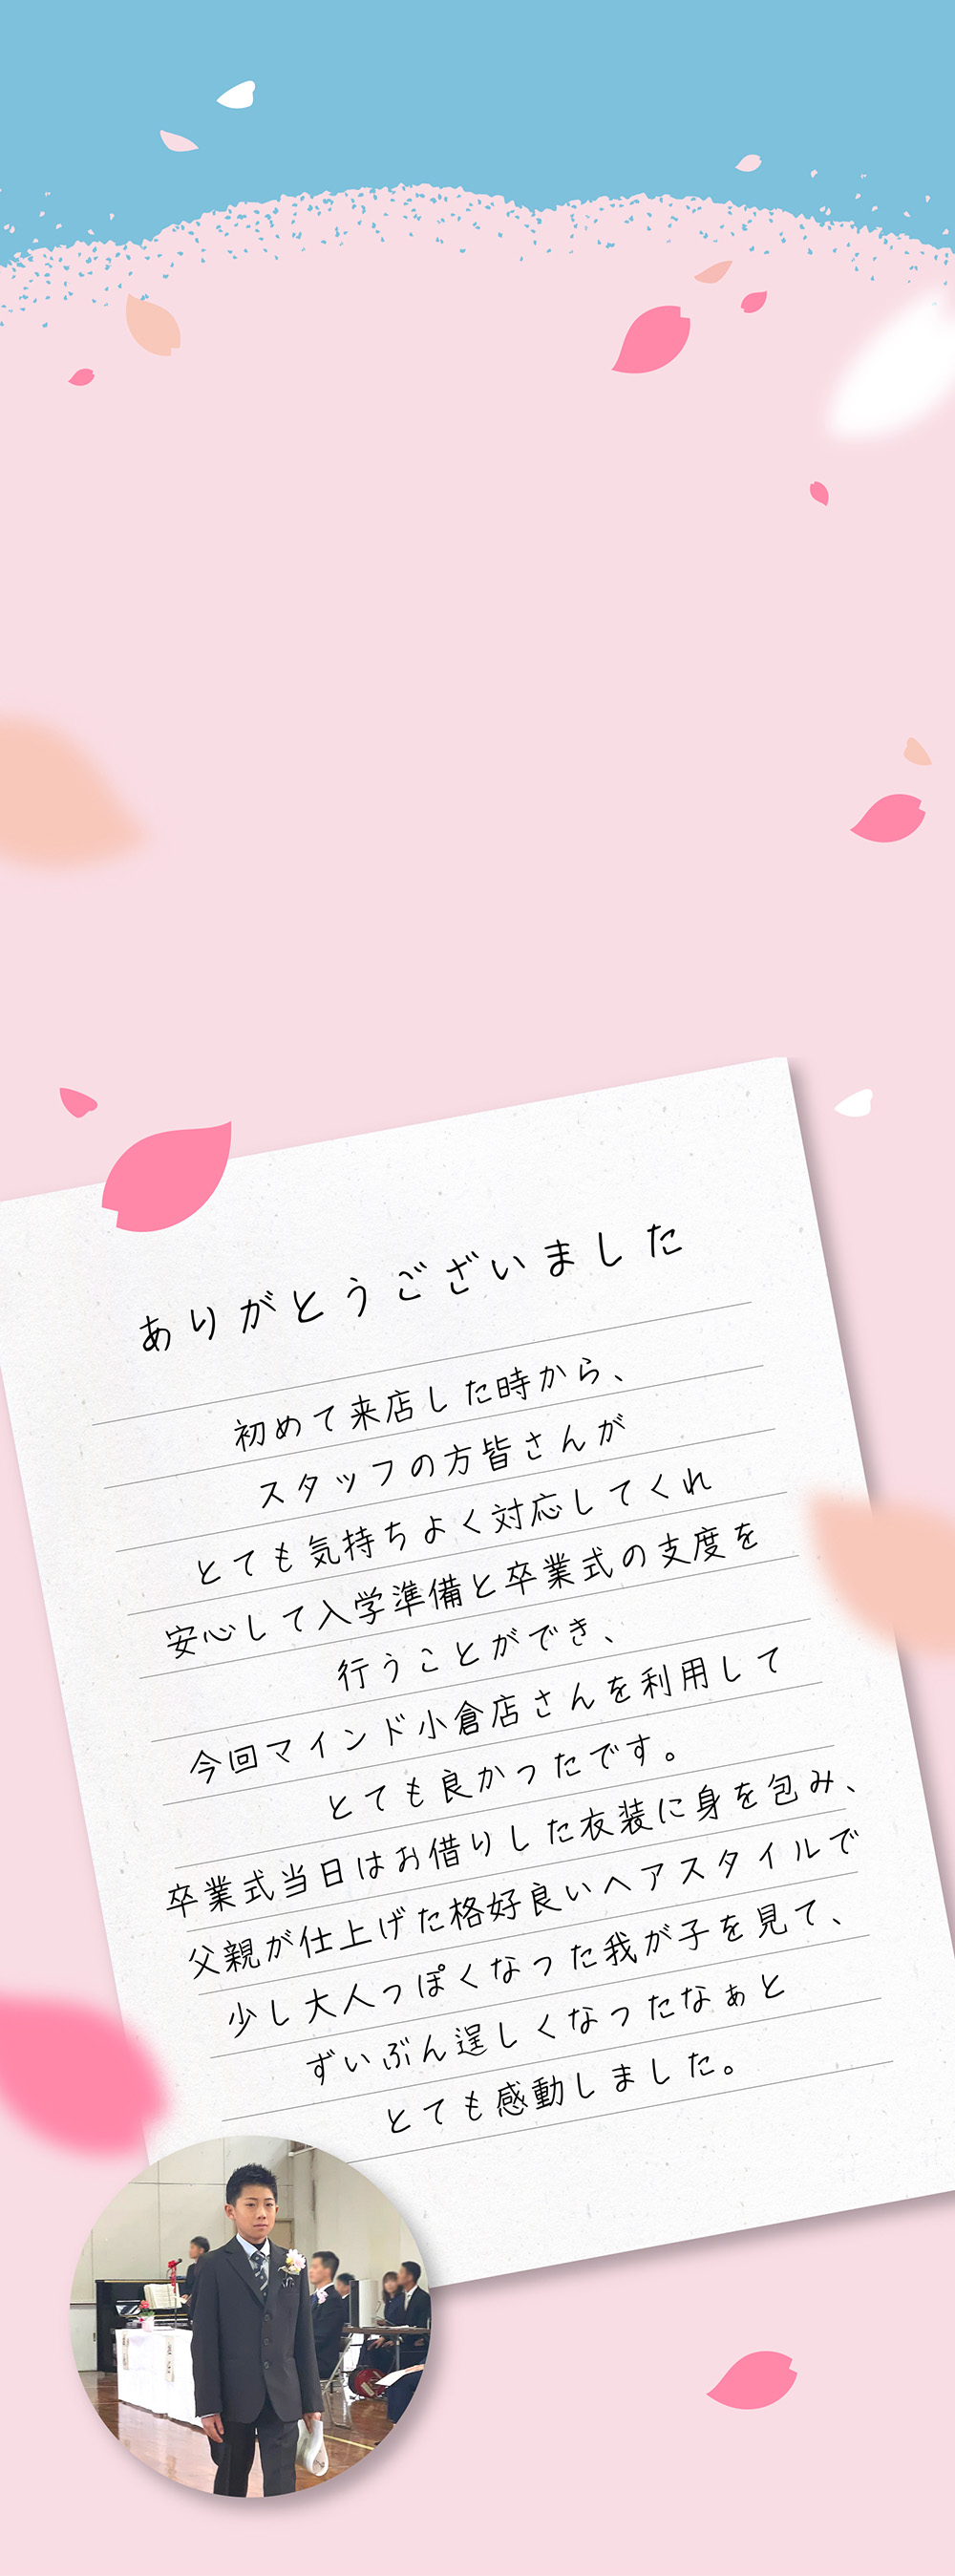 ありがとうございました
初めて来店した時から、
スタッフの方皆さんが
とても気持ちよく対応してくれ
安心して入学準備と卒業式の支度を
行うことができ、
今回マインド小倉店さんを利用して
とても良かったです。
卒業式当日はお借りした衣装に身を包み、
父親が仕上げた格好良いヘアスタイルで
少し大人っぽくなった我が子を見て、
ずいぶん逞しくなったなぁと
とても感動しました。